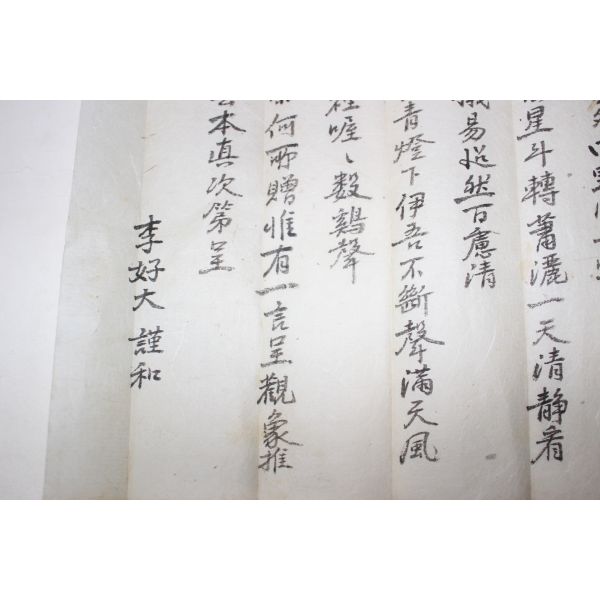 星斗轉蕭灑一天清静看
易超然百慮清
青燈下伊吾不斷聲滿天風
喔〻数鷄聲
何所贈惟有一言呈觀象推
本真次第呈
李好大謹和